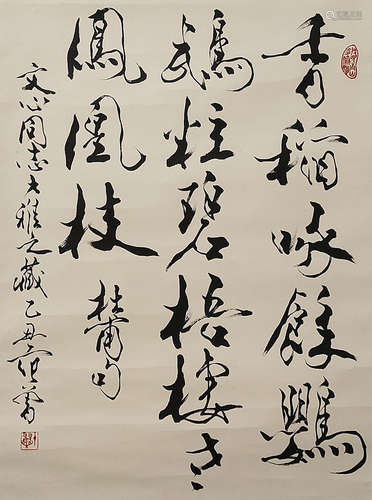 香稻啄餘鸚
鵡粒碧梧棲老
鳳凰枝 杜甫句
文心同志大雅之藏 乙丑 范曾